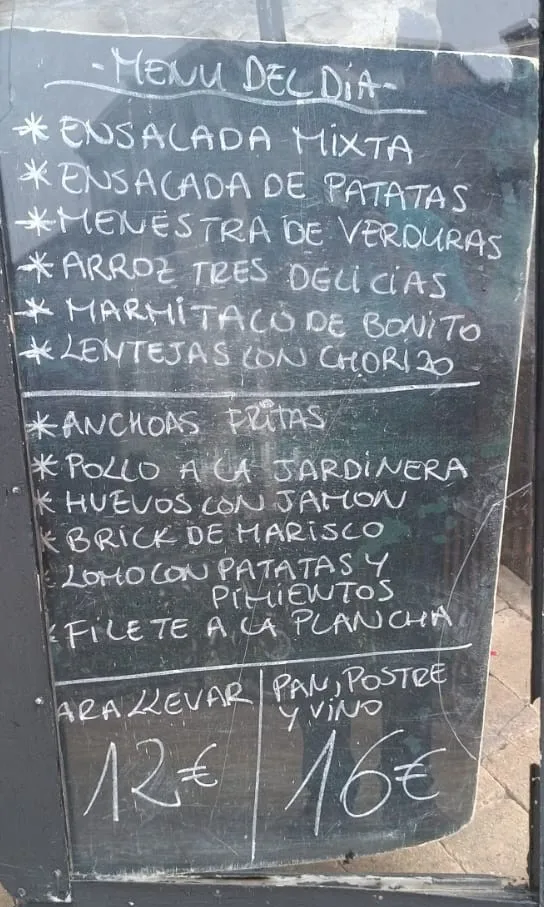 - MENU DEL DÍA -
* ENSALADA MIXTA
* ENSALADA DE PATATAS
* MENESTRA DE VERDURAS
* ARROZ TRES DELICIAS
* MARMITACO DE BONITO
* LENTEJAS CON CHORIZO
* ANCHOAS FRITAS
* POLLO A LA JARDINERA
* HUEVOS CON JAMON
* BRICK DE MARISCO
* LOMO CON PATATAS Y
PIMIENTOS
* FILETE A LA PLANCHA
ARA LLEVAR
12€
PAN, POSTRE
Y VINO
16€